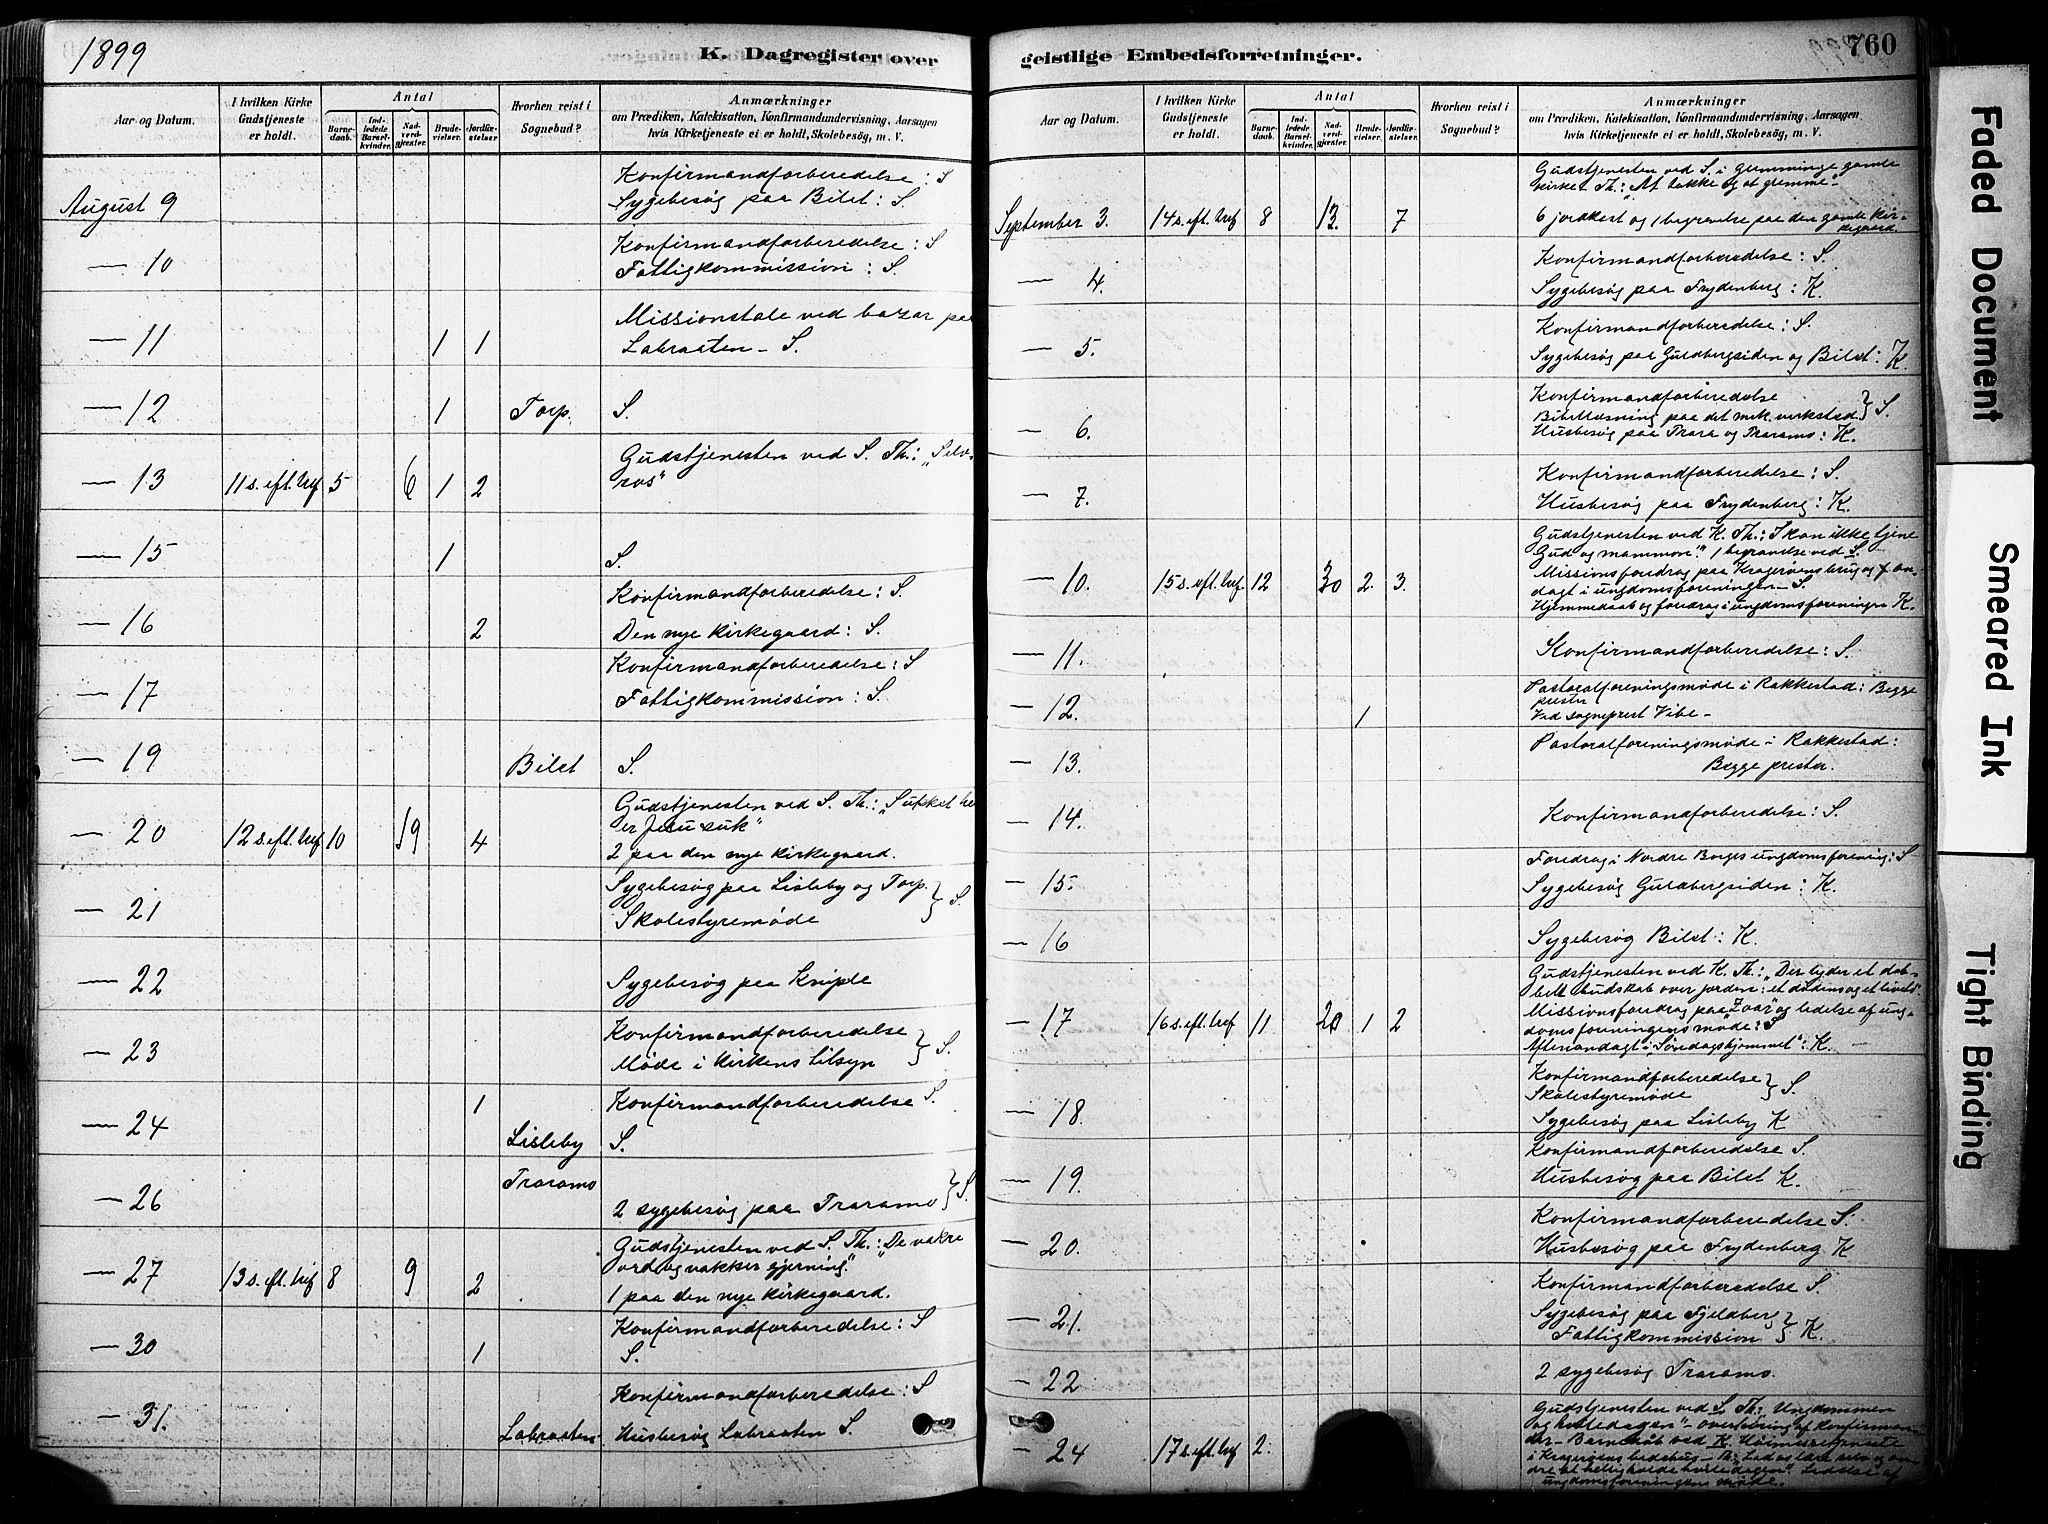 1899
K. Dagregister over
Aar og Datum.
I hvilken Kirke Gudstjeneste er holdt.
Antal
Barnedaab.
Indledede Barselkvinder.
Nadverdgjester.
Brudevielser.
Jordfæstelser
Hvorhen reist i Sognebud?
Anmærkninger
om Prædiken, Katekisation, Konfirmandundervisning, Aarsagen
hvis Kirketjeneste ei er holdt, Skolebesøg, m. V.
August 9
Konfirmandforberedelse : S
Sygebesøg paa Bilet : S.
— 10
Konfirmandforberedelse : S
Fattigkommission : S.
— 11 1 1
Missionstale ved bazar paa
Labraaten – S.
— 12 1 Torp. S.
— 13 11 s. eft. tref 5 6 1 2
Gudstjenesten ved S. Th.: „Selv-
ros"
— 15 1 S.
— 16 2
Konfirmandforberedelse : S.
Den nye kirkegaard : S.
— 17
Konfirmandforberedelse : S
Fattigkommission : S.
— 19 Bilet S.
— 20 12 s. eft. tref 10 19 4
Gudstjenesten ved S. Th.: „Sukket
er Jesu suk"
2 paa den nye kirkegaard.
— 21
Sygebesøg paa Lisleby og Torp. } S.
Skolestyremøde
— 22
Sygebesøg paa Kniple
— 23
Konfirmandforberedelse } S.
Møde i Kirkens tilsyn
— 24 1
Konfirmandforberedelse S.
Lisleby S.
— 26 Traramo
2 sygebesøg paa Traramo } S.
— 27 13 s. eft. tref 8 9 2
Gudstjenesten ved S. Th.: „De vakre
ord og vakker gjerning."
1 paa den nye kirkegaard.
— 30 1
Konfirmandforberedelse : S
S.
— 31.
Konfirmandforberedelse : S
Labraaten Husbesøg Labraaten S.
geistlige Embedsforretninger.
760
Aar og Datum.
I hvilken Kirke Gudstjeneste er holdt.
Antal
Barnedaab.
Indledede Barselkvinder.
Nadverdgjester.
Brudevielser.
Jordfæstelser.
Hvorhen reist i Sognebud?
Anmærkninger
om Prædiken, Katekisation, Konfirmandundervisning, Aarsagen
hvis Kirketjeneste ei er holdt, Skolebesøg, m. V.
Gudstjenesten ved S. i Glemminge gamle
kirke. Th.: „At takke og at glemme"
September 3. 14 s. eft. tref 8 13. 7
6 jordkast og 1 begravelse paa den gamle kir-
kegaard.
— 4.
Konfirmandforberedelse : S.
Sygebesøg paa Frydenberg : K.
— 5.
Konfirmandforberedelse : S.
Sygebesøg paa Guldbergsiden og Bilet : K.
— 6.
Konfirmandforberedelse
Bibellæsning paa det mek. verksted } S.
Husbesøg paa Trara og Traramo : K.
— 7.
Konfirmandforberedelse : S.
Husbesøg paa Frydenberg : K.
— 10. 15 s. eft. tref. 12 30 2. 3.
Gudstjenesten ved K. Th.: I kan ikke tjene
Gud og mammon." 1 begravelse ved S.
Missionsforedrag paa Kragerøens brug og an-
dagt i ungdomsforeningen – S.
Hjemmedaab og foredrag i ungdomsforeningen K.
— 11.
Konfirmandforberedelse : S.
— 12. 1
Pastoralforeningsmøde i Rakkestad : Begge
prester
Ved sogneprest Vibe –
— 13.
Pastoralforeningsmøde i Rakkestad :
Begge prester.
— 14.
Konfirmandforberedelse : S.
— 15.
Foredrag i Nordre Borges ungdomsforening : S
Sygebesøg Guldbergsiden : K.
— 16
Sygebesøg Bilet : K.
— 17 16 s. eft. tref 11 20 1 2
Gudstjenesten ved K. Th.: „Der lyder et dob-
belt budskab over jorden : et dødens og et livets"
Missionsforedrag paa „Zoar" og ledelse af ung-
domsforeningens møde : S
Aftenandagt i „Søndagshjemmet" : K.
— 18.
Konfirmandforberedelse } S.
Skolestyremøde
Sygebesøg paa Lisleby K
— 19.
Konfirmandforberedelse S.
Husbesøg paa Bilet K.
— 20.
Konfirmandforberedelse S.
Husbesøg paa Frydenberg K
— 21.
Konfirmandforberedelse S.
Sygebesøg paa Fjeldberg } K.
Fattigkommission
— 22
2 sygebesøg Traramo.
— 24 17 s. eft. tref 2.
Gudstjenesten ved S. Th.: Ungdommen
og hviledagen" – overhøring af konfirman-
der – Barnedåb ved K. Høimessetjeneste
i Kragerøens bedehus – Th.: Lad os lære selv og an-
dre at helligholde hviledagen". Ledelse af
ungdomsforeningens møde.
Faded Document
Smeared Ink
Tight Binding